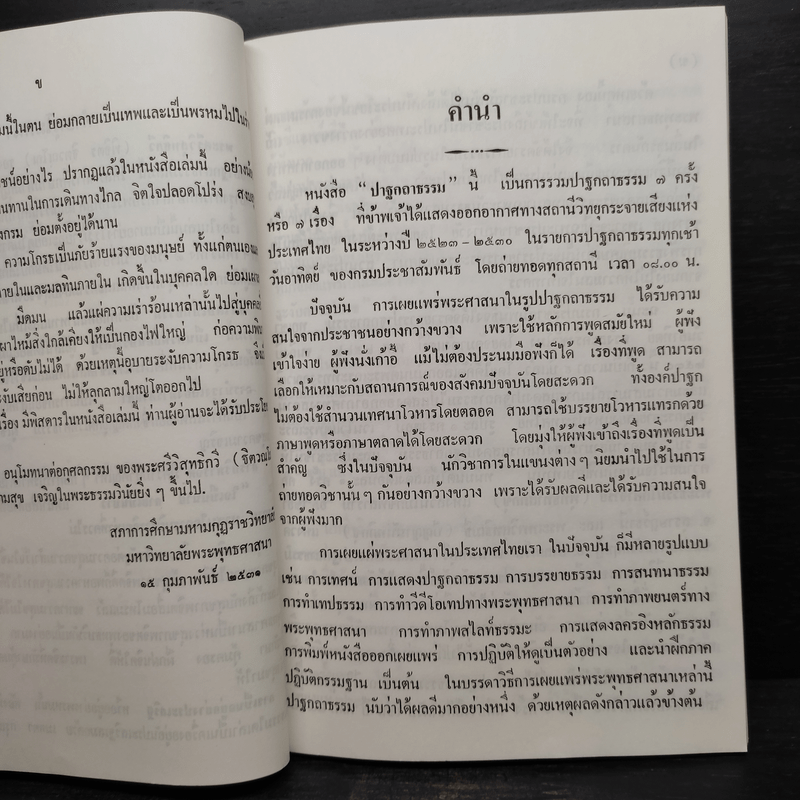 ข
นี้ในตน ย่อมกลายเป็นเทพและเป็นพรหมไปใน
ชน์อย่างไร ปรากฏแล้วในหนังสือเล่มนี้
นทานในการเดินทางไกล จิตใจปลอดโปร่ง
งกรม ย่อมตั้งอยู่ได้นาน
ความโกรธเป็นภัยร้ายแรงของมนุษย์ ทั้งแก่ตนเอง
ายในและมลทินภายใน เกิดขึ้นในบุคคลใด ย่อม
มืดมน แล้วแผ่ความเร่าร้อนเหล่านั้นไปสู่บุคคล
ผาไหม้สิ่งใกล้เคียงให้เป็นกองไฟใหญ่ ก่อความ
ยู่หรือดับไม่ได้ ด้วยเหตุนี้อุบายระงับความโกรธ
งับเสียก่อน ไม่ให้ลุกลามใหญ่โตออกไป
เรื่อง มีพิสดารในหนังสือเล่มนี้ ท่านผู้อ่านจะได้รับ
อนุโมทนาต่อกุศลกรรม ของพระศรีวิสุทธิกวี
ามสุข เจริญในพระธรรมวินัยยิ่ง ๆ ขึ้นไป.
สภาการศึกษามหามกุฏราชวิทยาลัย
มหาวิทยาลัยพระพุทธศาสนา
๑๕ กุมภาพันธ์ ๒๕๓๑
คำนำ
หนังสือ “ปาฐกถาธรรม” นี้ เป็นการรวมปาฐกถาธรรม ๗ ครั้ง
หรือ ๗ เรื่อง ที่ข้าพเจ้าได้แสดงออกอากาศทางสถานีวิทยุกระจายเสียงแห่ง
ประเทศไทย ในระหว่างปี ๒๕๒๓ – ๒๕๓๐ ในรายการปาฐกถาธรรมทุกเช้า
วันอาทิตย์ ของกรมประชาสัมพันธ์ โดยถ่ายทอดทุกสถานี เวลา ๐๘.๐๐ น.
ปัจจุบัน การเผยแพร่พระศาสนาในรูปปาฐกถาธรรม ได้รับความ
สนใจจากประชาชนอย่างกว้างขวาง เพราะใช้หลักการพูดสมัยใหม่ ผู้ฟัง
เข้าใจง่าย ผู้ฟังนั่งเก้าอี้ แม้ไม่ต้องประนมมือฟังก็ได้ เรื่องที่พูด สามารถ
เลือกให้เหมาะกับสถานการณ์ของสังคมปัจจุบันโดยสะดวก ทั้งองค์ปาฐก
ไม่ต้องใช้สำนวนเทศนาโวหารโดยตลอด สามารถใช้บรรยายโวหารแทรกด้วย
ภาษาพูดหรือภาษาตลาดได้โดยสะดวก โดยมุ่งให้ผู้ฟังเข้าถึงเรื่องที่พูดเป็น
สำคัญ ซึ่งในปัจจุบัน นักวิชาการในแขนงต่าง ๆ นิยมนำไปใช้ในการ
ถ่ายทอดวิชานั้น ๆ กันอย่างกว้างขวาง เพราะได้รับผลดีและได้รับความสนใจ
จากผู้ฟังมาก
การเผยแผ่พระศาสนาในประเทศไทยเรา ในปัจจุบัน ก็มีหลายรูปแบบ
เช่น การเทศน์ การแสดงปาฐกถาธรรม การบรรยายธรรม การสนทนาธรรม
การทำเทปธรรม การทำวีดีโอเทปทางพระพุทธศาสนา การทำภาพยนตร์ทาง
พระพุทธศาสนา การทำภาพสไลท์ธรรมะ การแสดงละครอิงหลักธรรม
การพิมพ์หนังสือออกเผยแพร่ การปฏิบัติให้ดูเป็นตัวอย่าง และนำฝึกภาค
ปฏิบัติกรรมฐาน เป็นต้น ในบรรดาวิธีการเผยแพร่พระพุทธศาสนาเหล่านี้
ปาฐกถาธรรม นับว่าได้ผลดีมากอย่างหนึ่ง ด้วยเหตุผลดังกล่าวแล้วข้างต้น